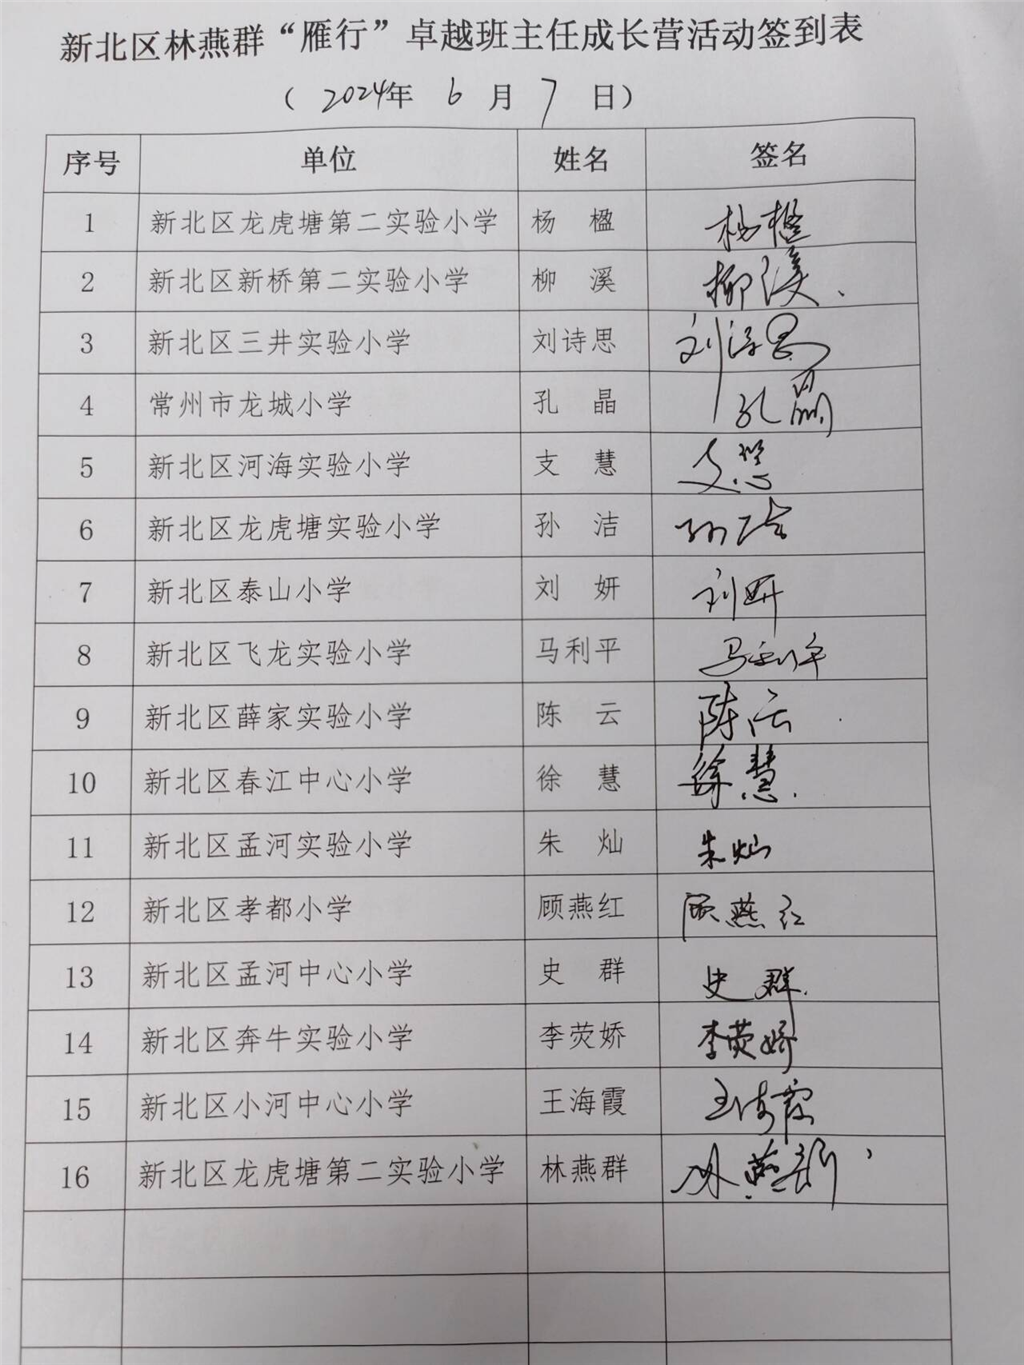 新北区林燕群“雁行”卓越班主任成长营活动签到表
（ 2024年 6 月 7 日）
序号 单位 姓名 签名
1 新北区龙虎塘第二实验小学 杨 楹 杨楹
2 新北区新桥第二实验小学 柳 溪 柳溪
3 新北区三井实验小学 刘诗思 刘诗思
4 常州市龙城小学 孔 晶 孔晶
5 新北区河海实验小学 支 慧 支慧
6 新北区龙虎塘实验小学 孙 洁 孙洁
7 新北区泰山小学 刘 妍 刘妍
8 新北区飞龙实验小学 马利平 马利平
9 新北区薛家实验小学 陈 云 陈云
10 新北区春江中心小学 徐 慧 徐慧
11 新北区孟河实验小学 朱 灿 朱灿
12 新北区孝都小学 顾燕红 顾燕红
13 新北区孟河中心小学 史 群 史群
14 新北区奔牛实验小学 李荧娇 李荧娇
15 新北区小河中心小学 王海霞 王海霞
16 新北区龙虎塘第二实验小学 林燕群 林燕群